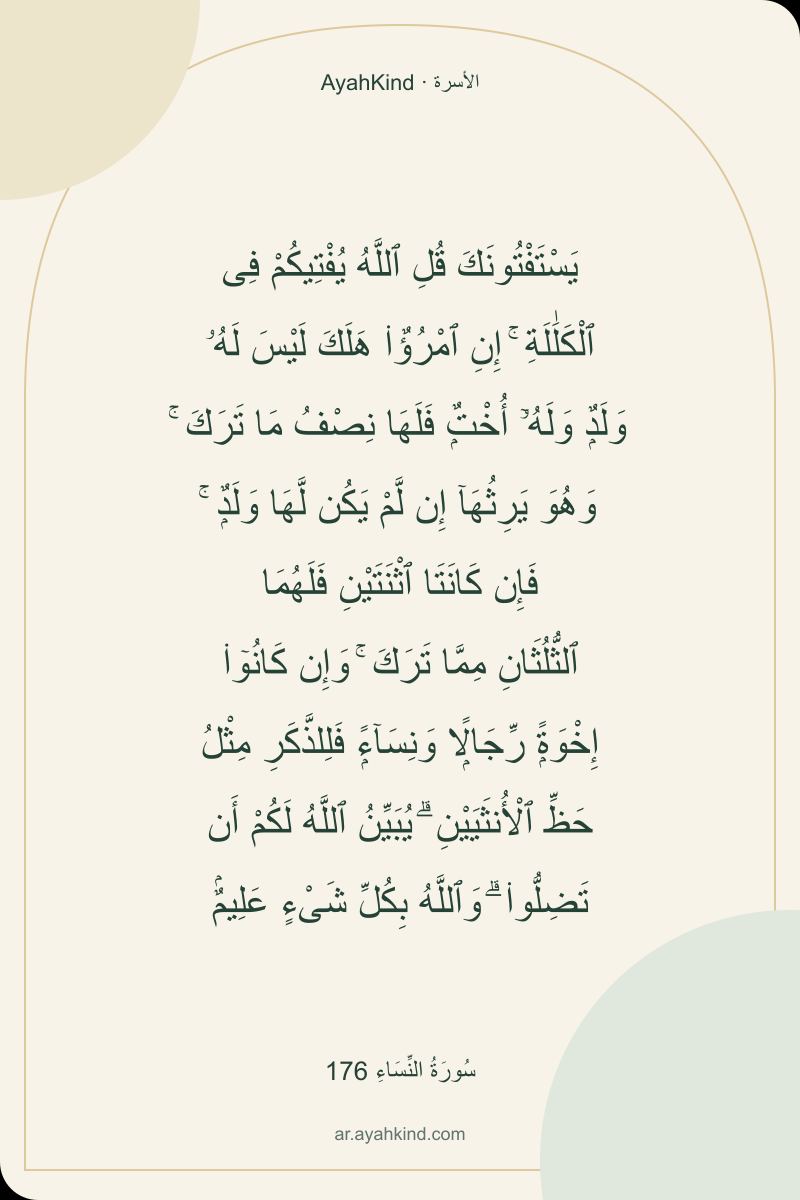 AyahKind · الأسرة
يَسْتَفْتُونَكَ قُلِ ٱللَّهُ يُفْتِيكُمْ فِى
ٱلْكَلَٰلَةِ ۚ إِنِ ٱمْرُؤٌا۟ هَلَكَ لَيْسَ لَهُۥ
وَلَدٌۭ وَلَهُۥٓ أُخْتٌۭ فَلَهَا نِصْفُ مَا تَرَكَ ۚ
وَهُوَ يَرِثُهَآ إِن لَّمْ يَكُن لَّهَا وَلَدٌۭ ۚ
فَإِن كَانَتَا ٱثْنَتَيْنِ فَلَهُمَا
ٱلثُّلُثَانِ مِمَّا تَرَكَ ۚ وَإِن كَانُوٓا۟
إِخْوَةًۭ رِّجَالًۭا وَنِسَآءًۭ فَلِلذَّكَرِ مِثْلُ
حَظِّ ٱلْأُنثَيَيْنِ ۗ يُبَيِّنُ ٱللَّهُ لَكُمْ أَن
تَضِلُّوا۟ ۗ وَٱللَّهُ بِكُلِّ شَىْءٍ عَلِيمٌۢ
سُورَةُ النِّسَاءِ 176
ar.ayahkind.com